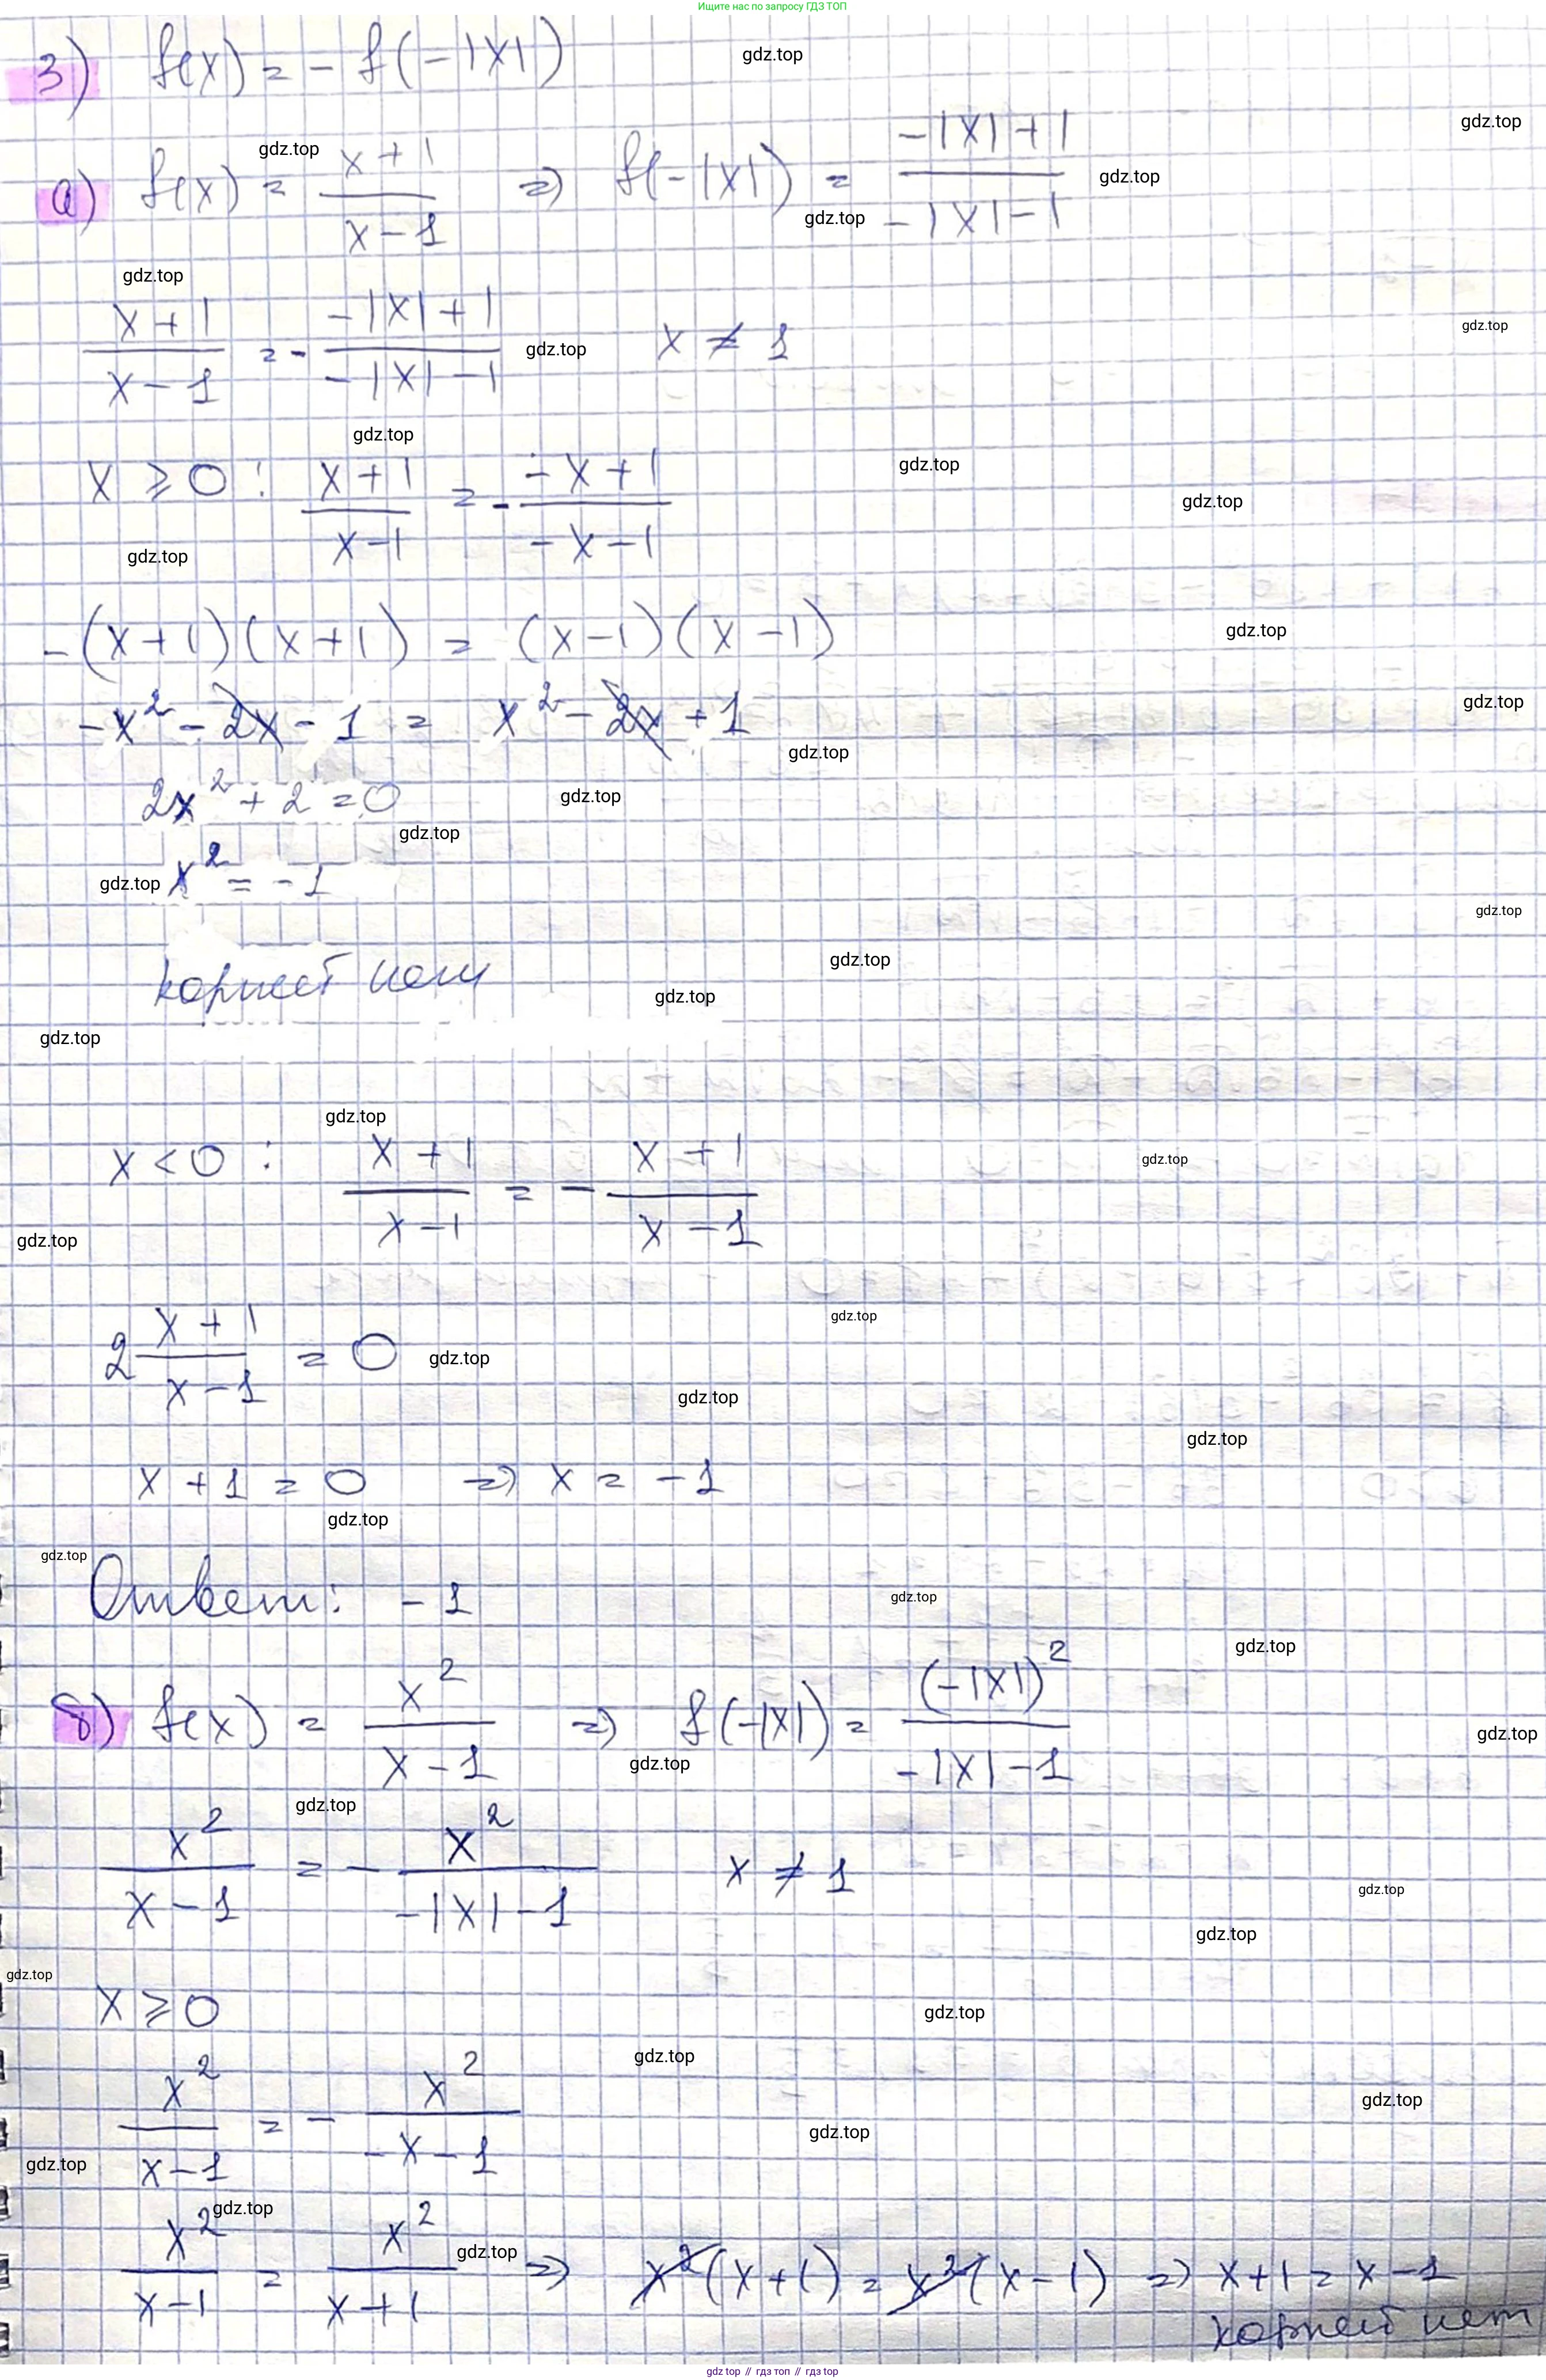 Ищите нас по запросу ГДЗ ТОП
3) f(x) = - f(-|x|)
gdz.top
gdz.top
а) f(x) = (x+1)/(x-1) => f(-|x|) = (-|x|+1)/(-|x|-1)
gdz.top
gdz.top
gdz.top
gdz.top
(x+1)/(x-1) = - (-|x|+1)/(-|x|-1) x ≠ 1
gdz.top
gdz.top
gdz.top
x ⩾ 0 : (x+1)/(x-1) = - (-x+1)/(-x-1)
gdz.top
gdz.top
gdz.top
-(x+1)(x+1) = (x-1)(x-1)
gdz.top
-x² - 2x - 1 = x² - 2x + 1
gdz.top
gdz.top
2x² + 2 = 0
gdz.top
gdz.top
x² = -1
gdz.top
gdz.top
корней нет
gdz.top
gdz.top
gdz.top
gdz.top
x < 0 : (x+1)/(x-1) = - (x+1)/(x-1)
gdz.top
gdz.top
2 (x+1)/(x-1) = 0
gdz.top
gdz.top
gdz.top
gdz.top
x + 1 = 0 => x = -1
gdz.top
gdz.top
Ответ: -1
gdz.top
gdz.top
б) f(x) = x²/(x-1) => f(-|x|) = (-|x|)²/(-|x|-1)
gdz.top
gdz.top
gdz.top
x²/(x-1) = - x²/(-|x|-1) x ≠ 1
gdz.top
gdz.top
gdz.top
x ⩾ 0
gdz.top
gdz.top
x²/(x-1) = - x²/(-x-1)
gdz.top
gdz.top
gdz.top
gdz.top
x²/(x-1) = x²/(x+1) => x²(x+1) = x²(x-1) => x+1 = x-1
gdz.top
корней нет
gdz.top // гдз топ // гдз.top